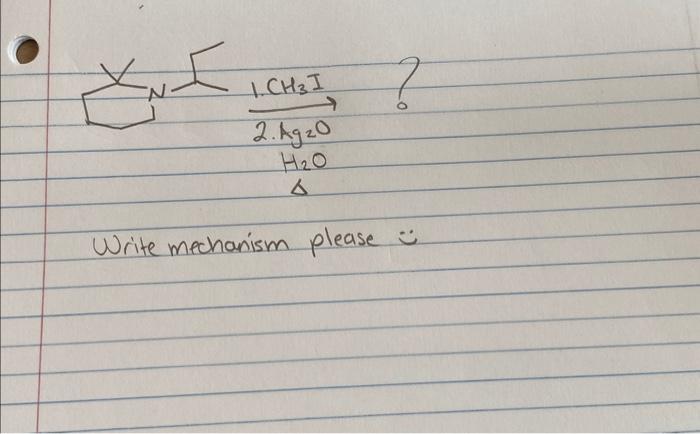 N
1. CH3I
?
2. Ag2O
H2O
Δ
Write mechanism please :)